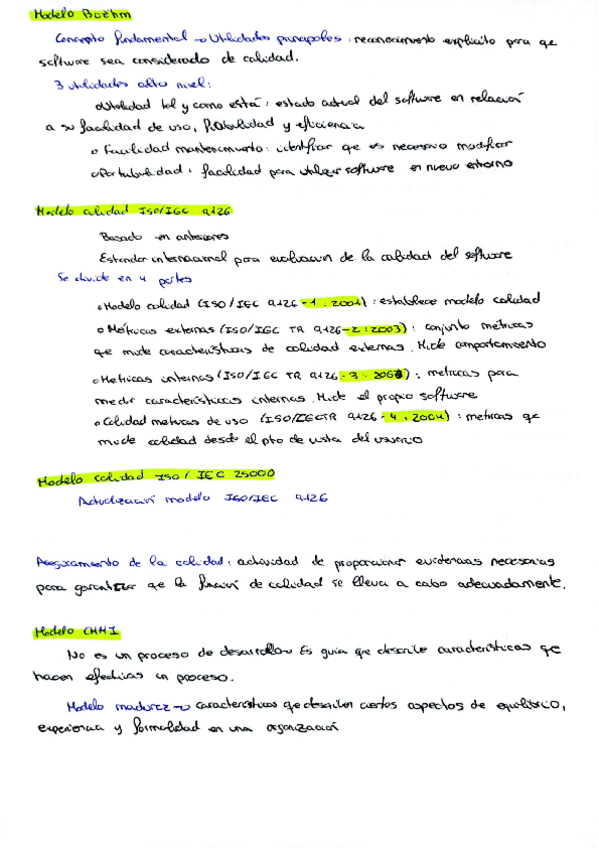 Modelo Boëhm
Concepto fundamental → Utilidades principales: reconocimiento explícito para que
software sea considerado de calidad.
3 utilidades alto nivel:
o Utilidad tal y como está: estado actual del software en relación
a su facilidad de uso, fiabilidad y eficiencia
o Facilidad mantenimiento: identificar que es necesario modificar
o Portabilidad: facilidad para utilizar software en nuevo entorno
Modelo calidad ISO/IEC 9126
Basado en anteriores
Estandar internacional para evaluación de la calidad del software
Se divide en 4 partes
o Modelo calidad (ISO/IEC 9126-1:2001): establece modelo calidad
o Métricas externas (ISO/IEC TR 9126-2:2003): conjunto métricas
que mide características de calidad externas. Mide comportamiento
o Metricas internas (ISO/IEC TR 9126-3:2003): metricas para
medir características internas. Mide el propio software
o Calidad metricas de uso (ISO/IEC TR 9126-4:2004): metricas que
mide calidad desde el pto de vista del usuario
Modelo calidad ISO/IEC 25000
Actualización modelo ISO/IEC 9126
Aseguramiento de la calidad: actividad de proporcionar evidencias necesarias
para garantizar que la función de calidad se lleva a cabo adecuadamente.
Modelo CMMI
No es un proceso de desarrollo → Es guía que describe características que
hacen efectivas un proceso.
Modelo madurez → características que describen ciertos aspectos de equilibrio,
experiencia y formalidad en una organización